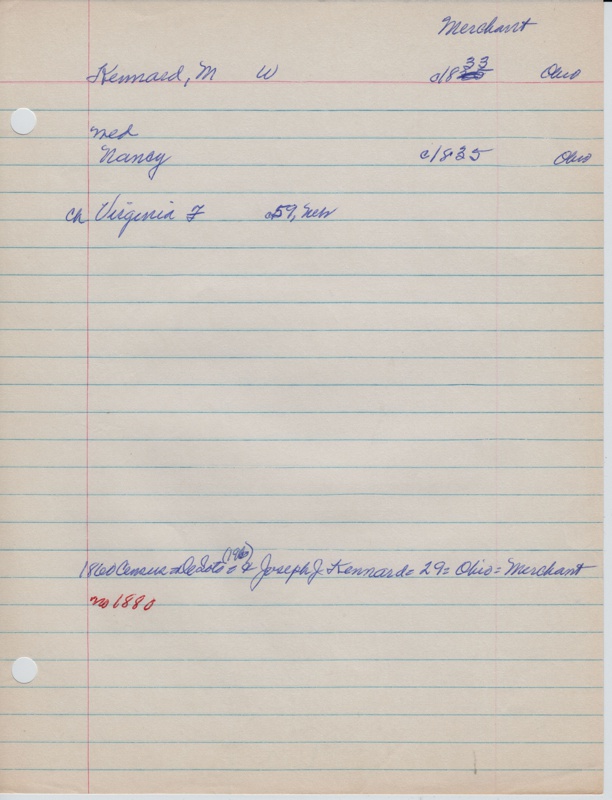 Merchant
Kennard, M W c1833 Ohio
med
Nancy c1835 Ohio
ch Virginia F c59, Neb
(196)
1860 Census = DeSoto = & Joseph J Kennard = 29 = Ohio = Merchant
no 1880